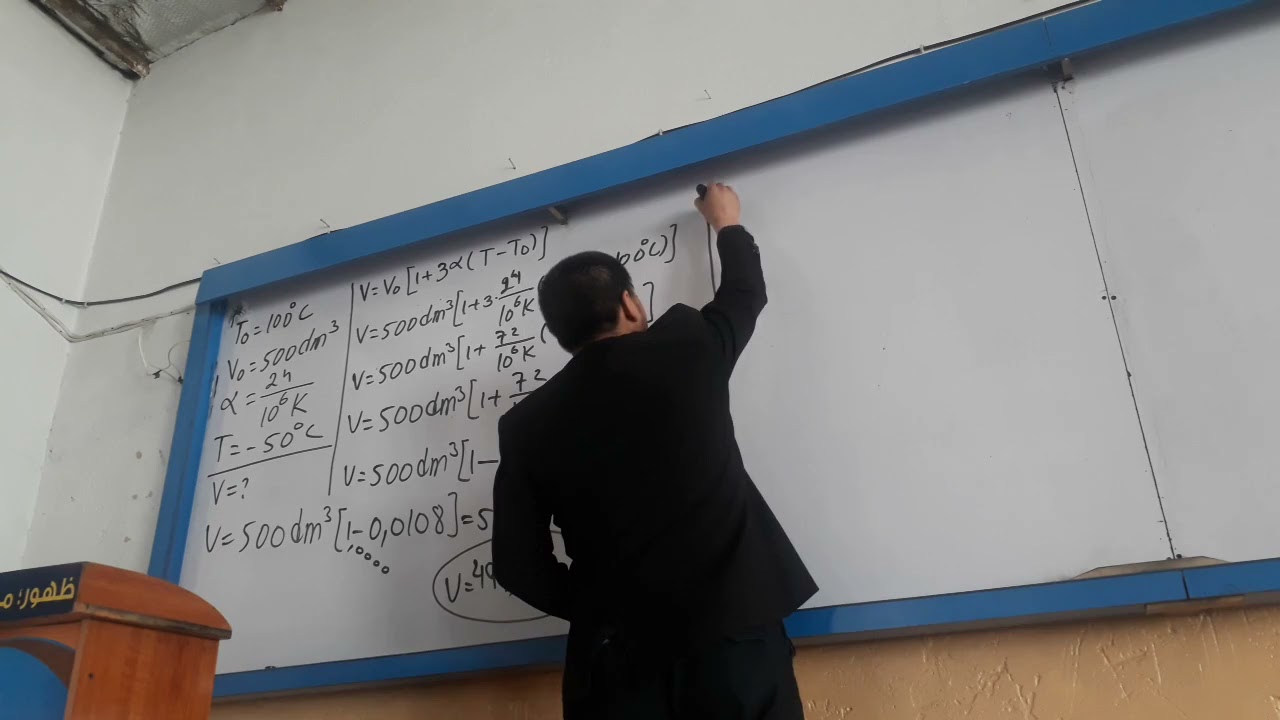 T₀=100°C
V₀=500dm³
α=24/10⁶K
T=-50°C
V=?
V=V₀[1+3α(T-T₀)]
V=500dm³[1+3·94/10⁶K 00°C)]
V=500dm³[1+72/10⁶K( ]
V=500dm³[1+72
V=500dm³[1-
V=500dm³[1-0,0108]=5
V=49
ظهور؛